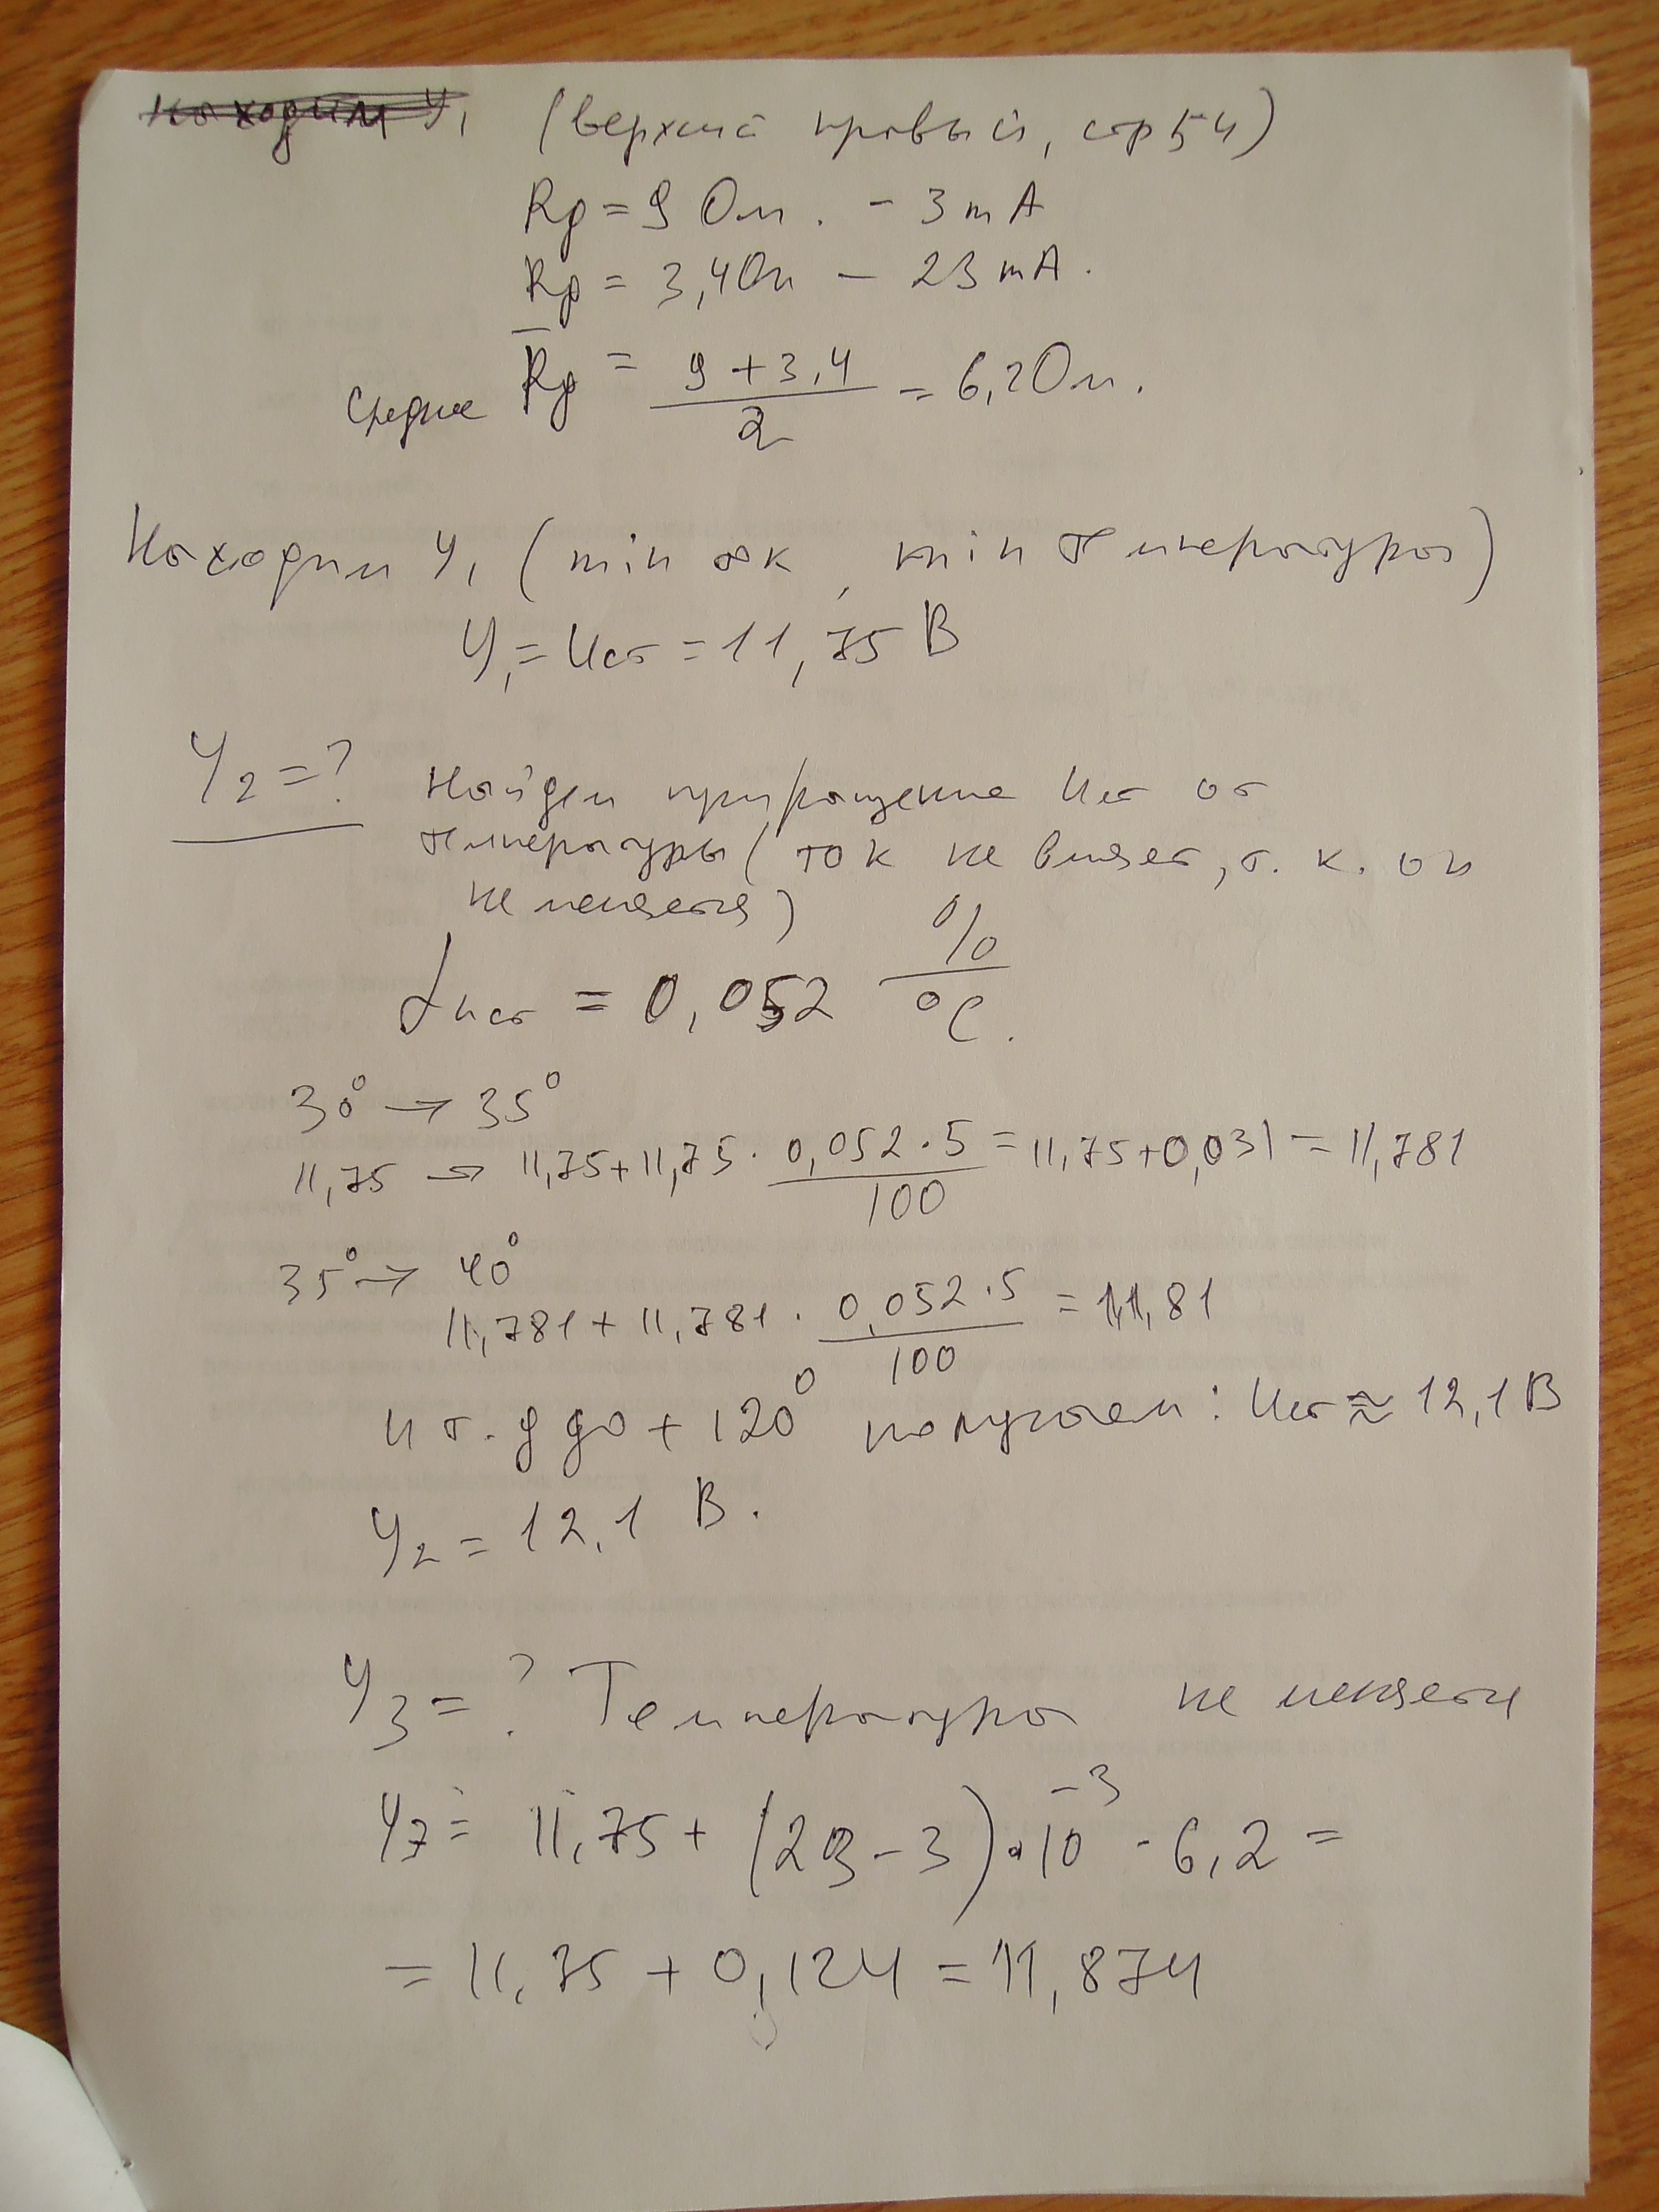 Находим У₁ (верхний правый, стр 54)
Rд = 9 Ом. – 3 mA
Rд = 3,4 Ом – 23 mA.
Среднее R̅д = (9 + 3,4) / 2 = 6,2 Ом.
Находим У₁ (min ток, min температура)
У₁ = Uст = 11,75 В
У₂ = ? Найдем приращение Uст от
температуры (ток не влияет, т. к. он
не меняется)
αUст = 0,052 %/°C.
30° → 35°
11,75 → 11,75 + 11,75 · (0,052 · 5) / 100 = 11,75 + 0,031 = 11,781
35° → 40°
11,781 + 11,781 · (0,052 · 5) / 100 = 11,81
и т. д до + 120° получаем: Uст ≈ 12,1 В
У₂ = 12,1 В.
У₃ = ? Температура не меняется
У₃ = 11,75 + (23 – 3) · 10⁻³ · 6,2 =
= 11,75 + 0,124 = 11,874